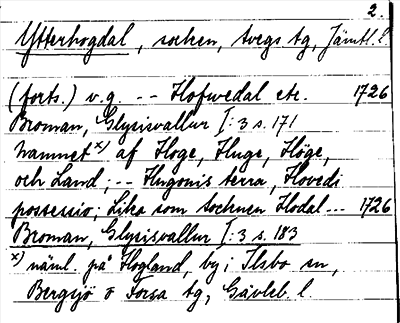 2.
Ytterhogdal, socken, Svegs tg, Jämtl. l.
(forts.) v.g. -- Hofwedal etc. 1726
Broman, Glysisvallur I:3 s. 171
hamnet x) af Hoge, Huge, Höge,
och Land; -- Hugonis terra, Hovedi
possessio; Lika som socknen Hodal -- 1726
Broman, Glysisvallur I:3 s. 183
x) näml. på Hogland, by i Ilsbo sn,
Bergsjö o Forsa tg, Gävleb. l.